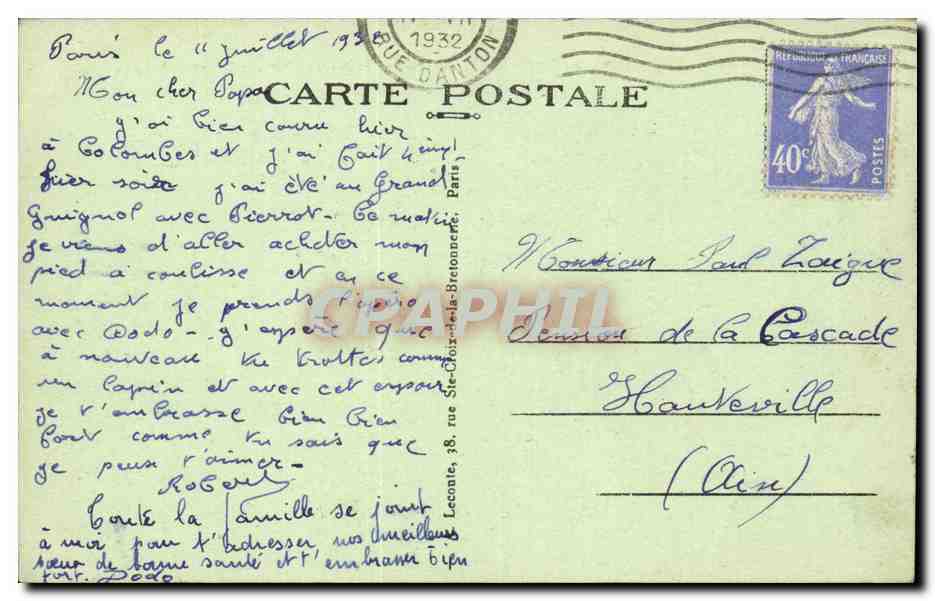 Paris le 11 juillet 1932
1932
RUE DANTON
REPUBLIQUE FRANÇAISE
40c
POSTES
CARTE POSTALE
Mon cher Papa
j'ai bien couru hier
à Colombes et j'ai fait
hier soir j'ai été au Grand
Guignol avec Pierrot - Ce matin
je viens d'aller acheter mon
pied à coulisse et en ce
moment je prends l'apéro
avec Dodo - J'espère que
à nouveau tu trottes comme
un lapin et avec cet espoir
je t'embrasse bien bien
fort comme tu sais que
je peux t'aimer -
Robert
Toute la famille se joint
à moi pour t'adresser nos meilleurs
voeux de bonne santé et t'embrasser bien
fort. Dodo
Leconte, 38, rue Ste-Croix-de-la-Bretonnerie, Paris
CPAPHIL
Monsieur Paul
Pension de la Cascade
Hauteville
(Ain)